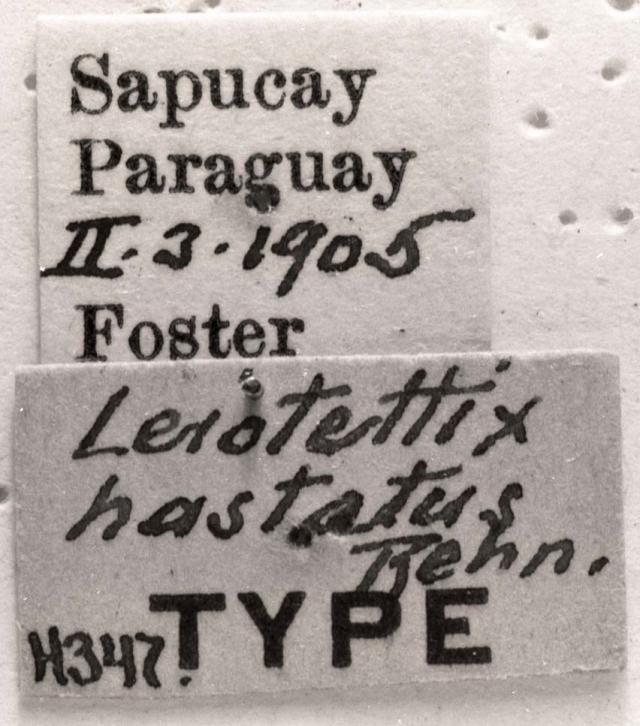 Sapucay
Paraguay
II.3.1905
Foster
Leiotettix
hastatus
Rehn.
TYPE
H347.